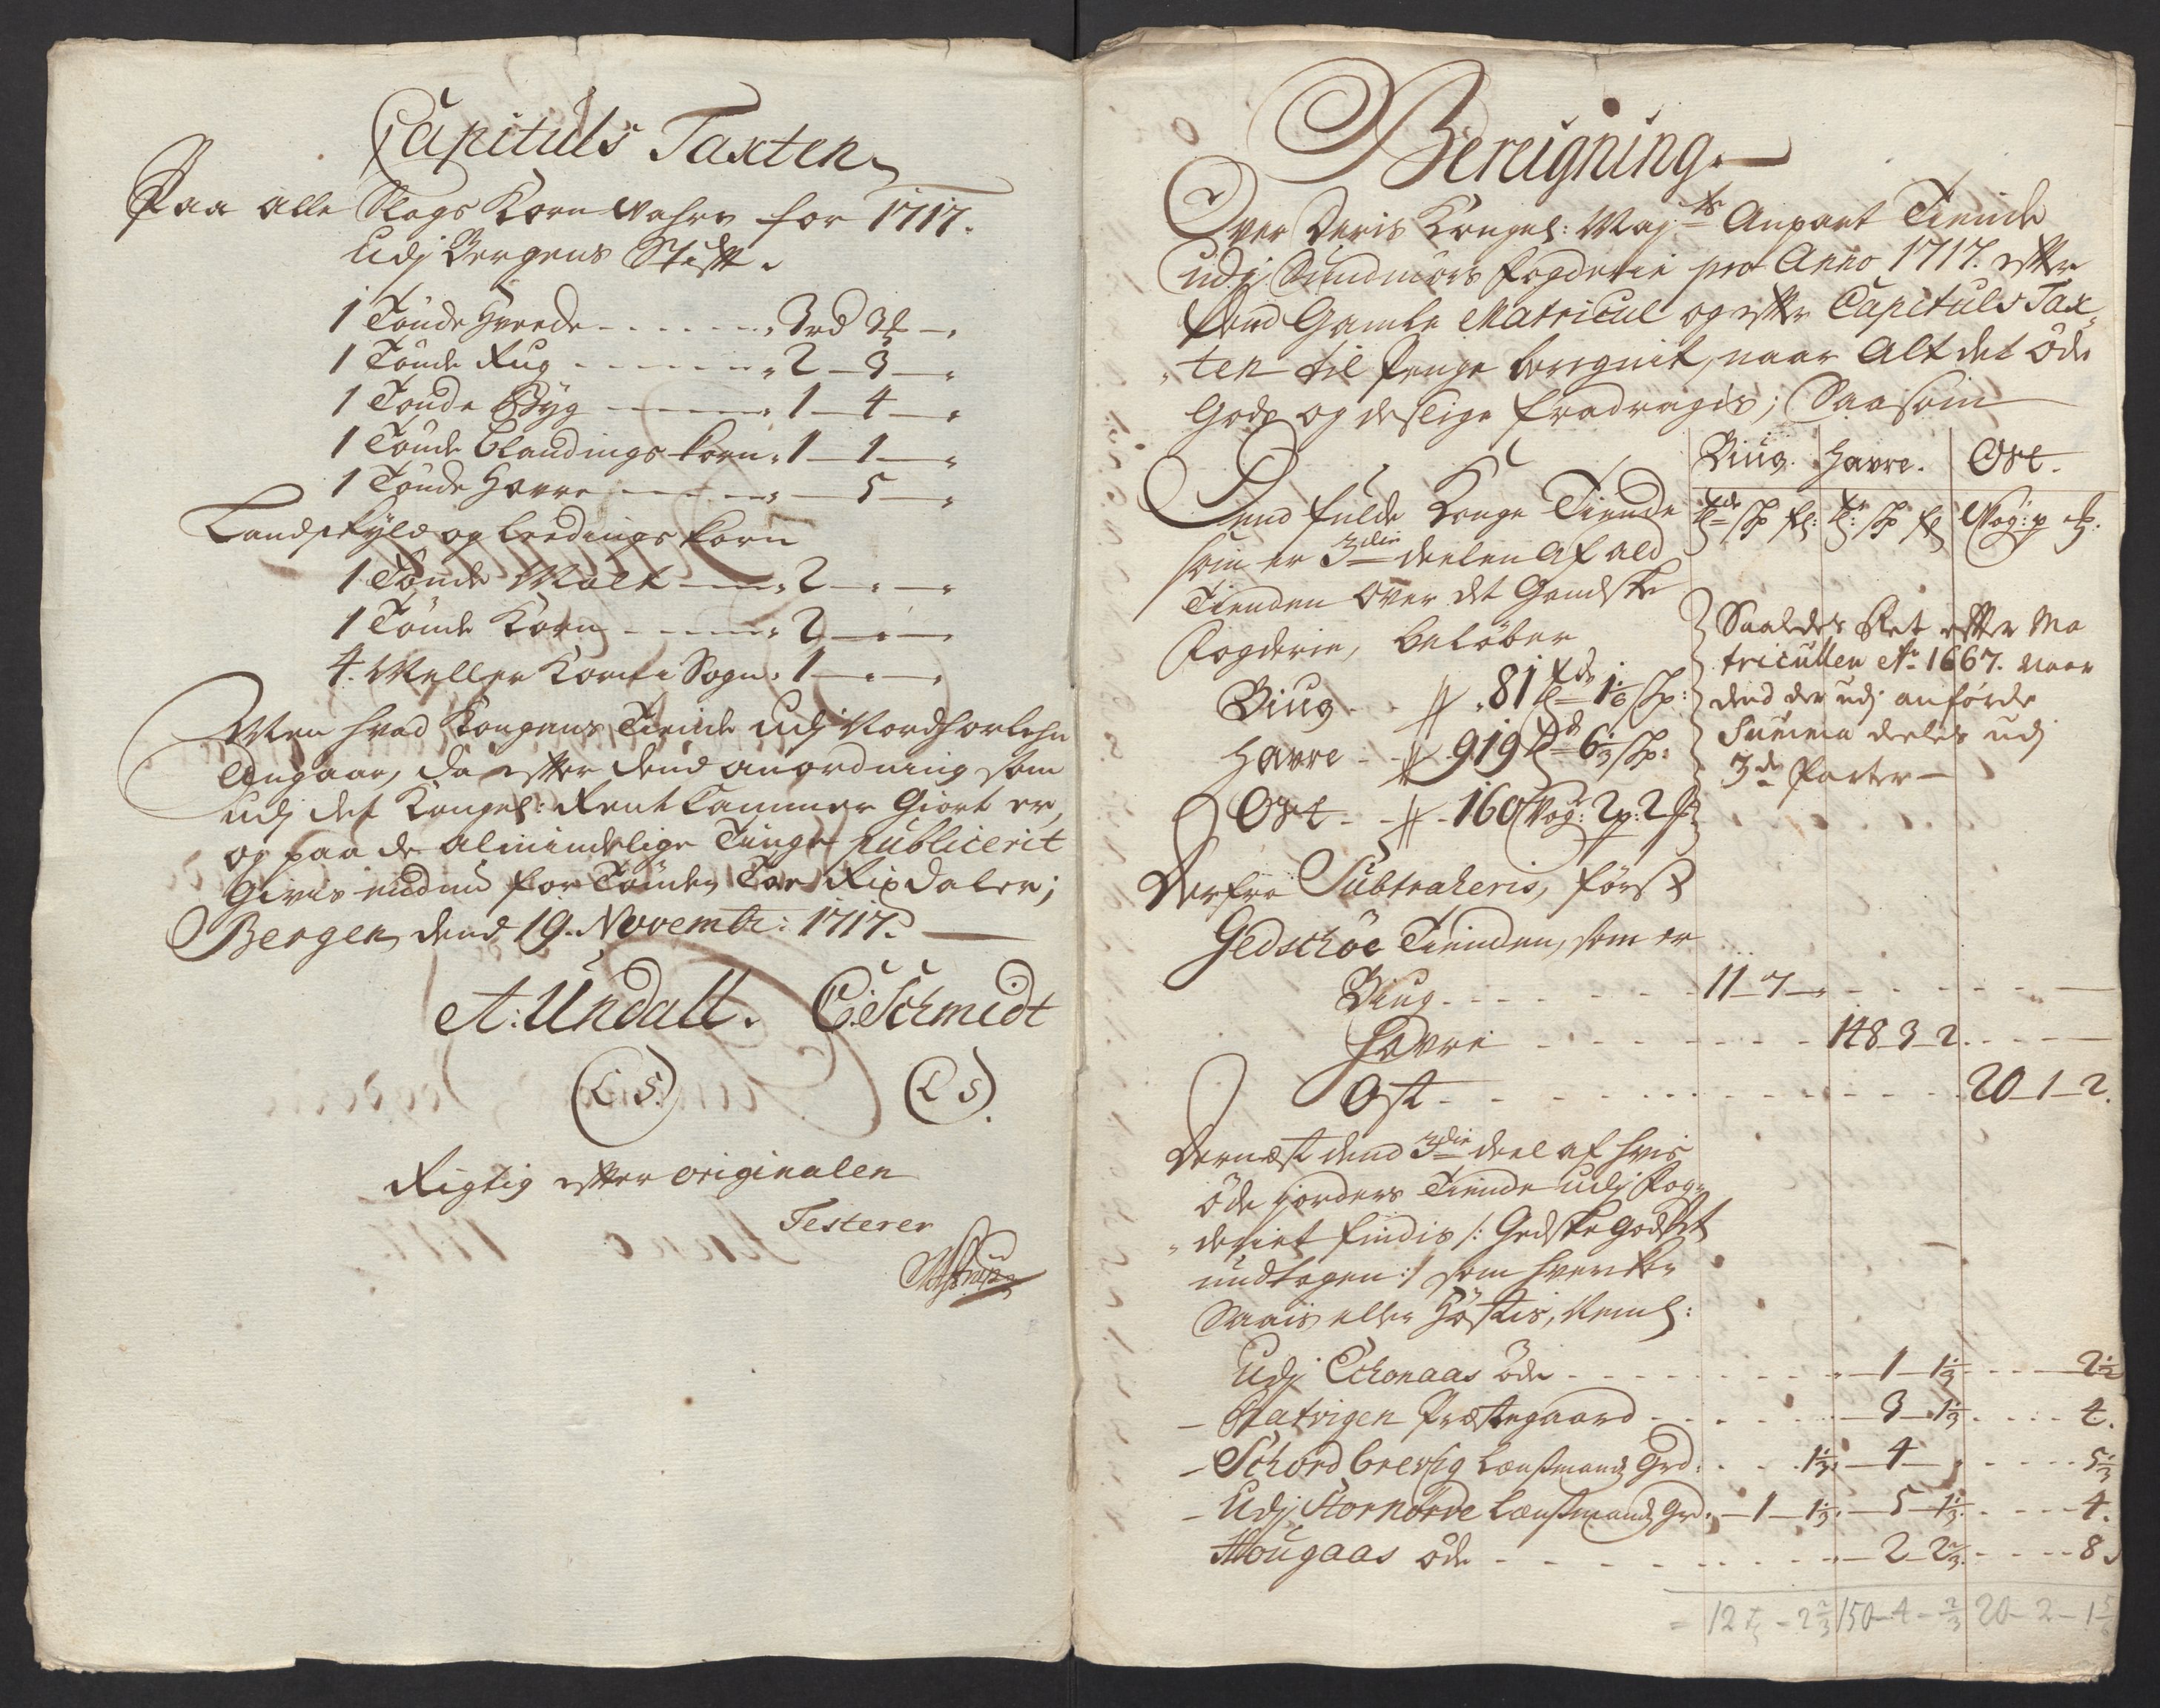 Capituls Taxten
Paa alle Slags Korn Wahre for 1717.
Udj Bergens Stift.
1 Tønde Hvede - - - - 3rd 3 ß -
1 Tønde Rug - - - - 2 - 3 -
1 Tønde Byg - - - - 1 - 4 -
1 Tønde blandings korn 1 - 1 -
1 Tønde Havre - - - - - 5 -
Landskyld og Leedings korn
1 Tønde Malt - - 2 - -
1 Tønde Korn - - - 2 - -
4. Meller Korn i Sogn. 1 - -
Men hvad Kongens Tiende udj Nordhorlehn
Angaar, da efter dend anordning som
udj det Kongel: RentKammer Giort er,
og paa de almindelige Tinge publicerit
Gives endnu for Tønden Toe Rixdaler;
Bergen dend 19. Novembr: 1717.
A: Undall. C: Schmidt
(L S.) (L S).
Rigtig efter originalen
Testerer
Bereigning.
Over Deris Kongel: Mayts Anpart Tiende
udj Sundmørs fogderie pro Anno 1717. efter
dend Gamle Matricul og efter Capituls Tax-
ten til Penge bereignet, naar Alt det øde
Gods og deslige fradragis; Saasom
Biug. Havre. Ost.
Dend fulde Konge Tiende
Som er 3die deelen Af ald
Tienden Over det Gandske
Fogderie, beløber
Biug - - 81 Tdr 1 1/6 Sp:
Havre - - 919 Td 6 1/3 Sp:
Ost - - 160 Vog: 2 p: 2
Saaledes Sat efter Ma
triculen Ao 1667. naar
dend der udj anførde
Summa deeles udj
3de Parter -
Derfra Subtraheris, først
Gedschøe Tienden, som er
Biug - - - - 11 - 7 -
Havre - - - - 148 3 2
Ost - - - - 20 - 1 - 2.
Dernæst dend 3die deel af hvis
øde jorders Tiende udj Fog-
deriet findis /: Gedske godset
undtagen :/ som hverken
Saais eller Høstis, Neml:
Udj Echonaas øde - - - - 1 - 1 1/3 - - 2 1/2
- Hatvigen Præstegaard - - - 3 - 1 1/3 - - 4.
- Schord brevig Lensmands Grd. - - 1 1/3 - 4 - - - 5 1/3
- Udj Stornorve Lensmands Grd. - 1 - 1 1/3 - 5 - 1 1/3 - - 4.
Hougaas øde - - - - 2 - 2 2/3 - - 8.
= 12 - 2 2/3 150 - 4 - 2/3 20 - 2 - 1